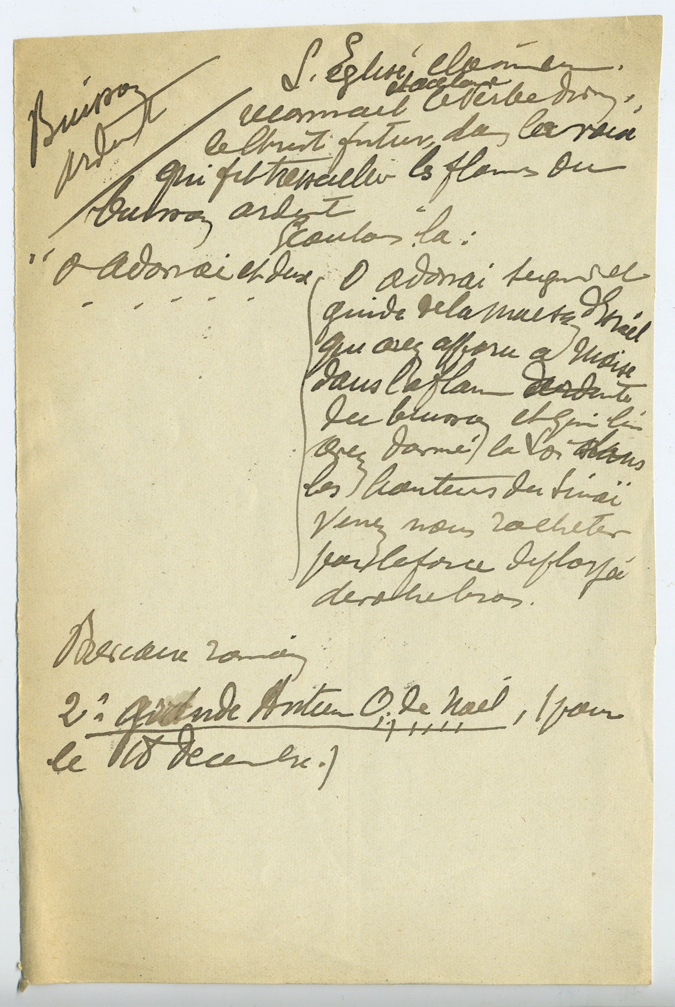 Buisson
ardent
L'Eglise
reconnait le Verbe
le Christ futur, dans la voix
qui fit tressaillir les flammes du
buisson ardent
Ecoutons-la :
"O Adonai et dux
O adonai seigneur et
guide de la maison d'Israël
qui avez apparu à Moïse
dans la flamme
du buisson et qui lui
avez donné la Loi dans
les hauteurs du Sinaï
venez nous racheter
par la force
de votre bras.
Breviaire romain
2e grande Antienne O, de Noël, (pour
le 18 decembre.)